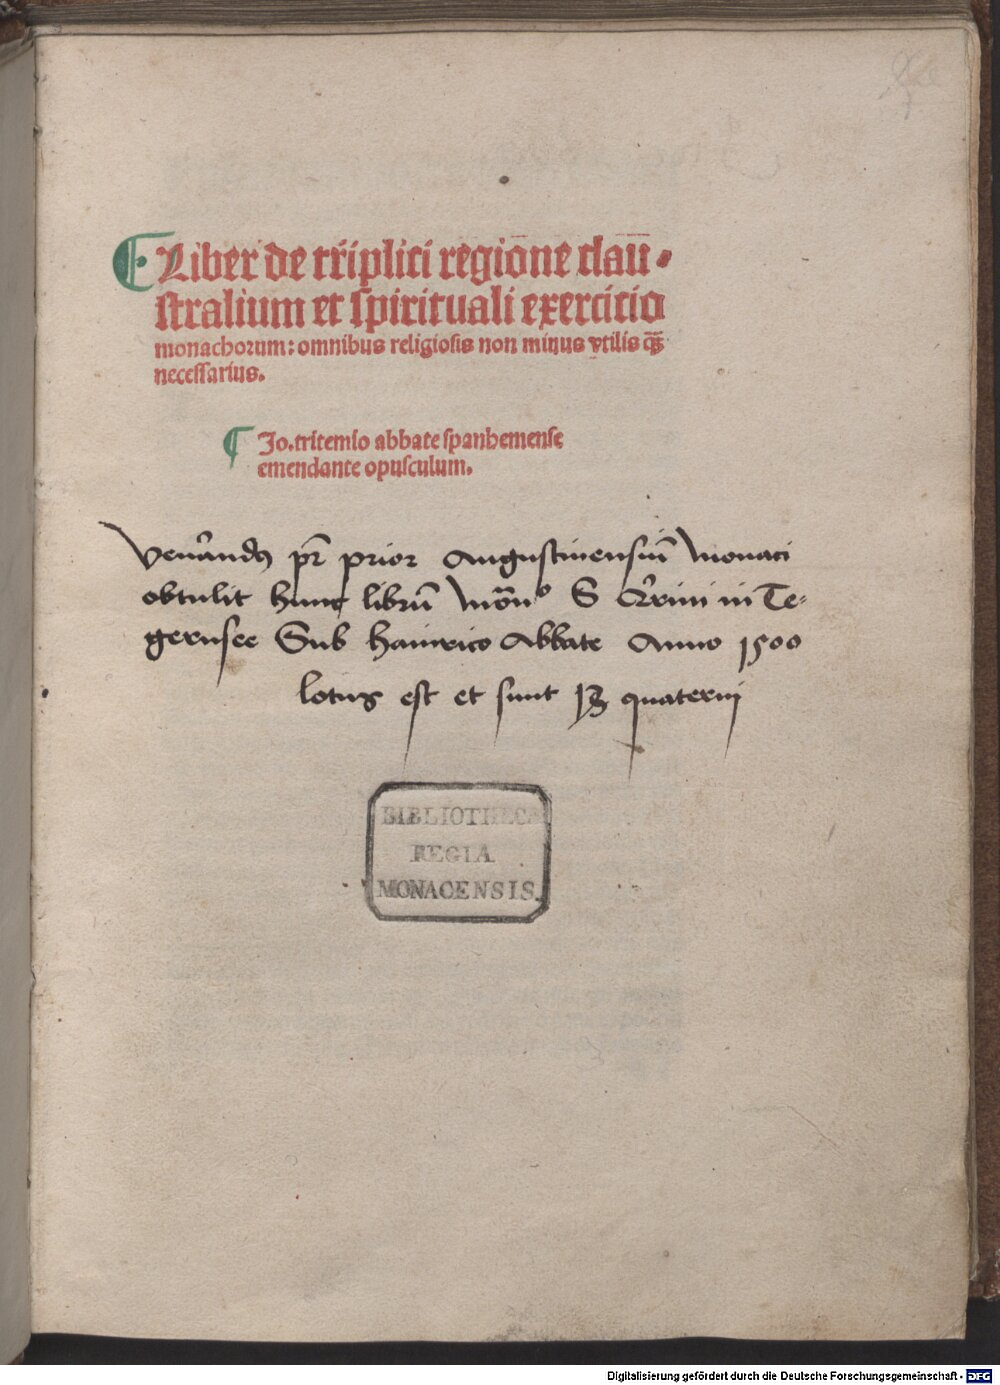 ¶ Liber de triplici regiōne clau̅-
stralium et spirituali exercitio
monachorum: omnibus religiosis non minus vtilis q̄ꝫ
necessarius.
¶ Jo. tritemio abbate spanhemense
emendante opusculum.
Ven̓andꝰ pr̄ prior Augustinensiū Monaci
obtulit hunc librū Mōn° S Q̓rini in Te-
gernsee Sub Hainrico Abbate Anno 1500
lotus est et sunt quaterni
BIBLIOTHECA
REGIA
MONACENSIS.
Digitalisierung gefördert durch die Deutsche Forschungsgemeinschaft - DFG